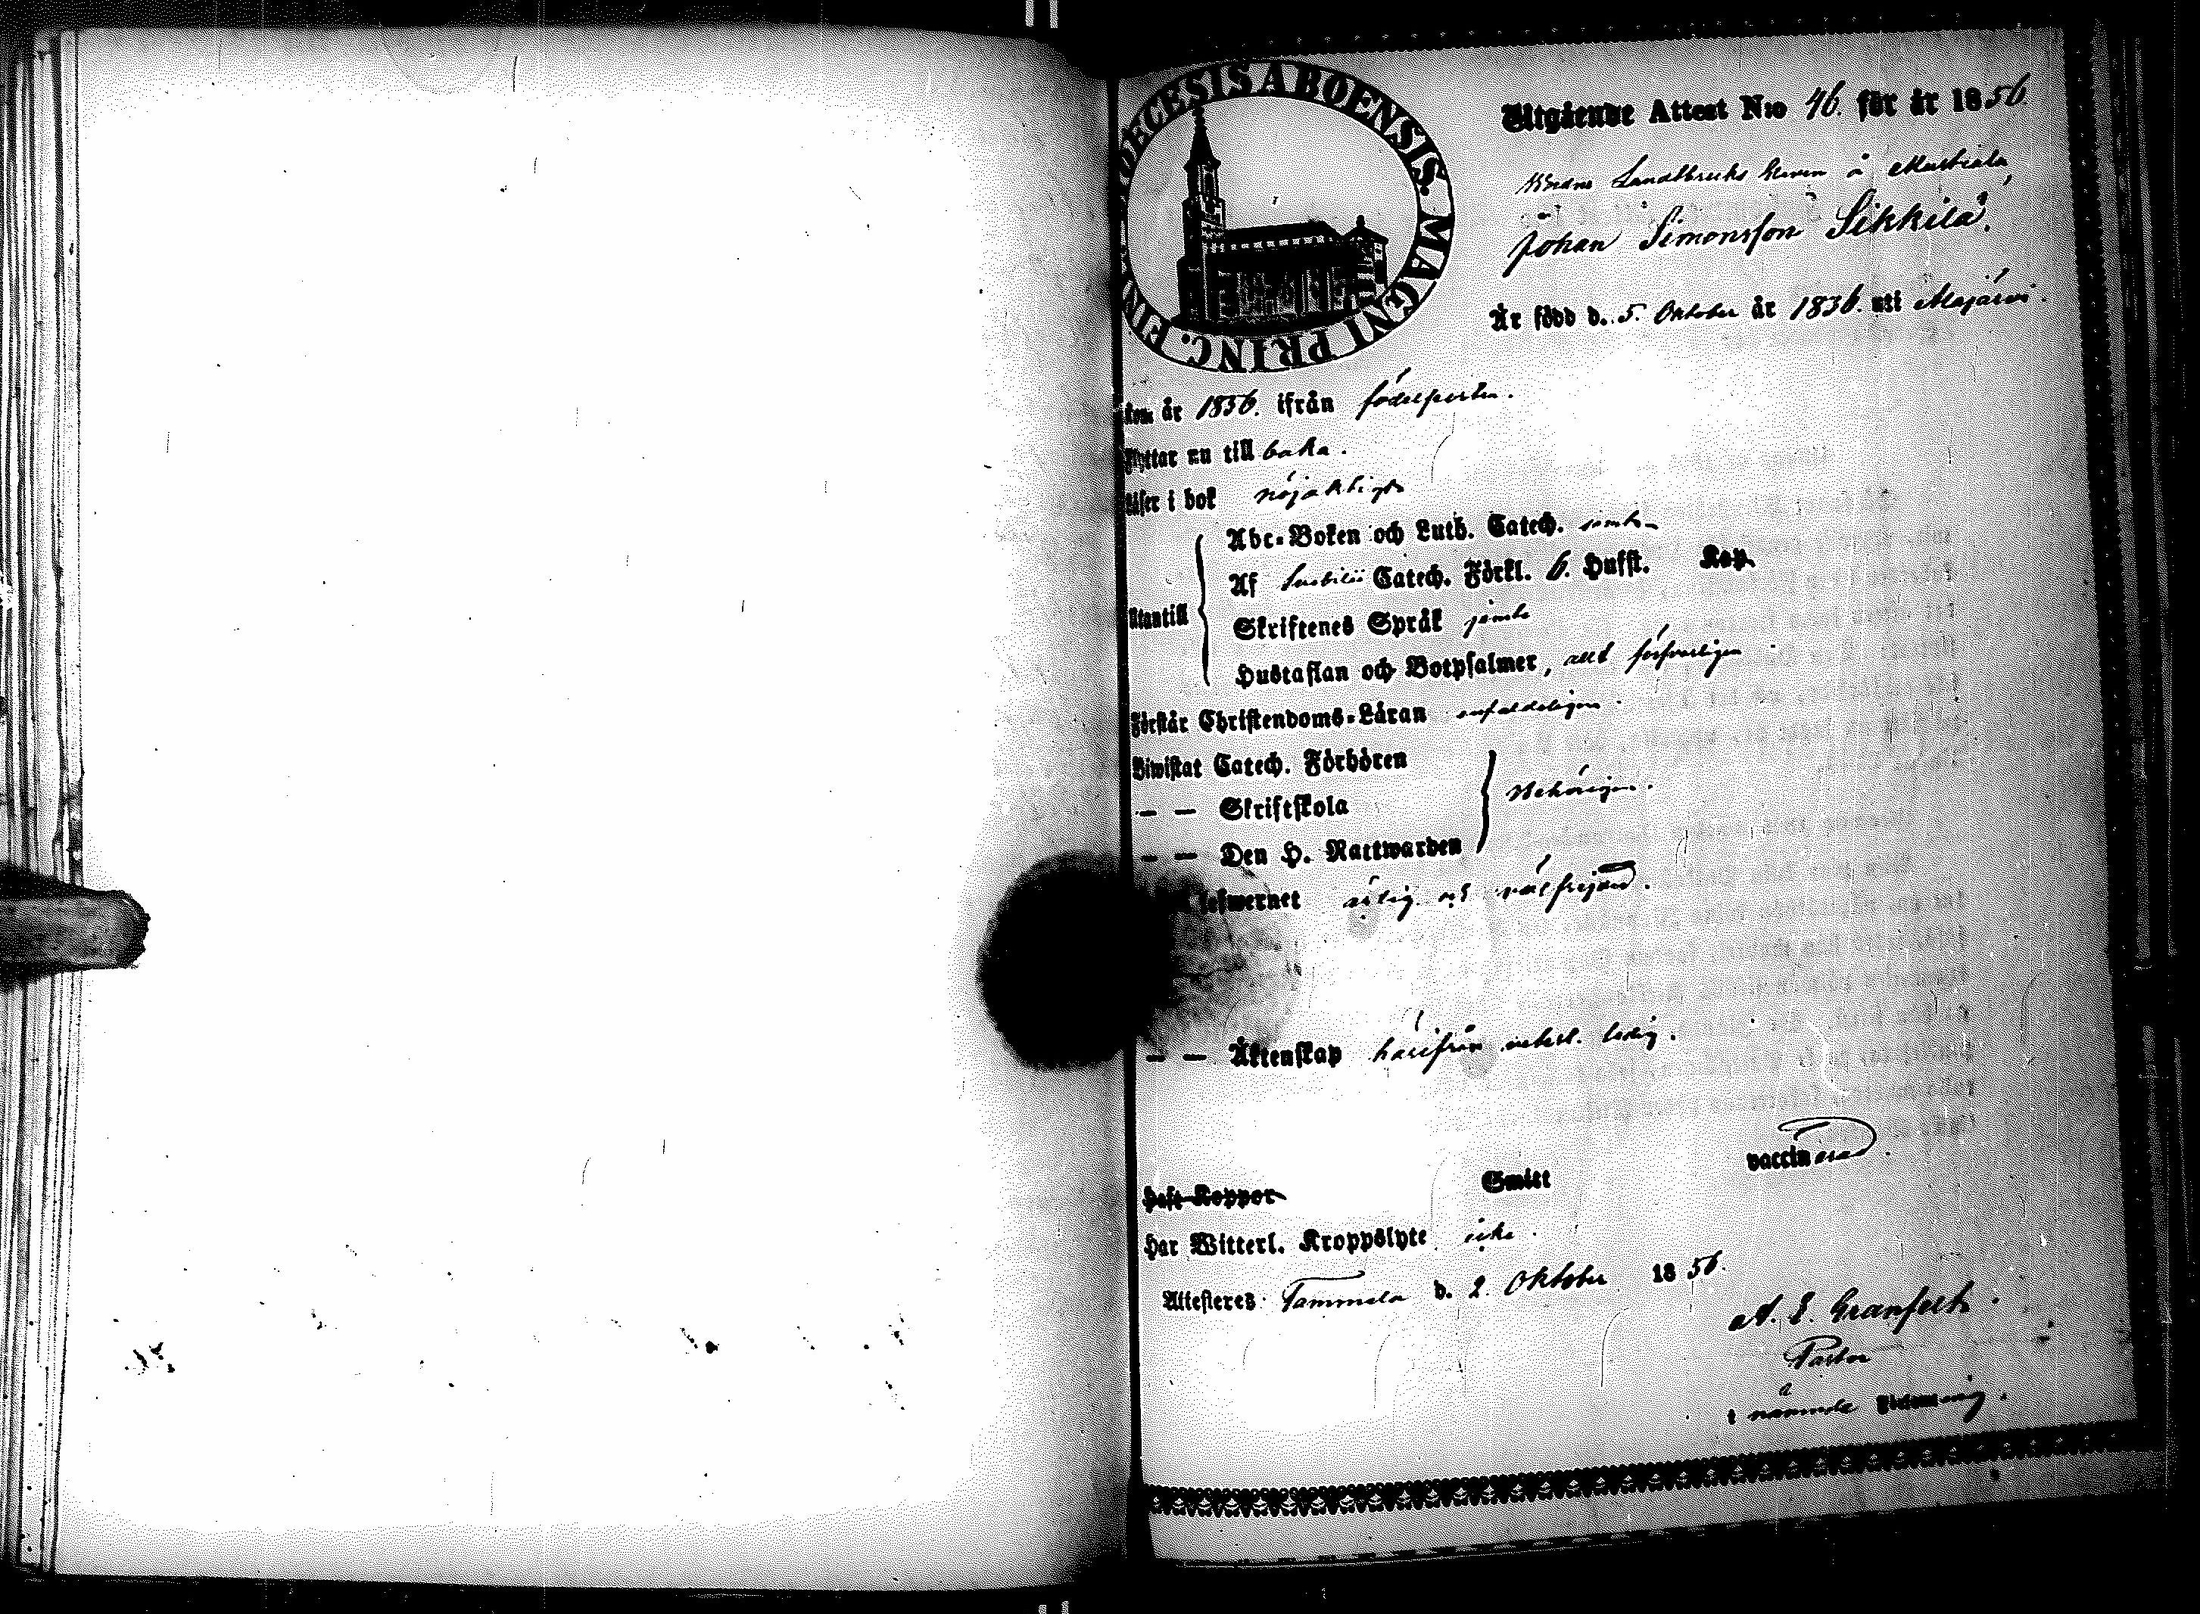 DIOECESIS ABOENSIS. MAGNI PRINC. FINL.
Utgående Attest N:o 46. för år 1856
Landtbruks Eleven å Mustiala,
Johan Simonsson Sikkilä,
Är född d. 5. Oktober år 1836. uti Alajärvi.
kom år 1856. ifrån födelseorten.
Flyttar nu till baka.
Läser i bok nöjaktigt
Abc-Boken och Luth. Catech. samt
Af Catech. Förkl. 6. Hufst. Kap.
Utantill
Skriftenes Språk jemte
Hustaflan och Botpsalmer, allt försvarligen
Förstår Christendoms-Läran enfaldeligen.
Biwistat Catech. Förhören
— — Skriftskola
behörigen.
— — Den H. Nattwarden
lefwernet ärlig och välfrejdad.
— — Äktenskap härifrån veterl. ledig.
Haft Koppor Smitt vaccinerad.
Har Witterl. Kroppslyte icke.
Attesteres Tammela d. 2. Oktober 1856.
A. E. Granfelt.
Pastor
i nämnde Församling.